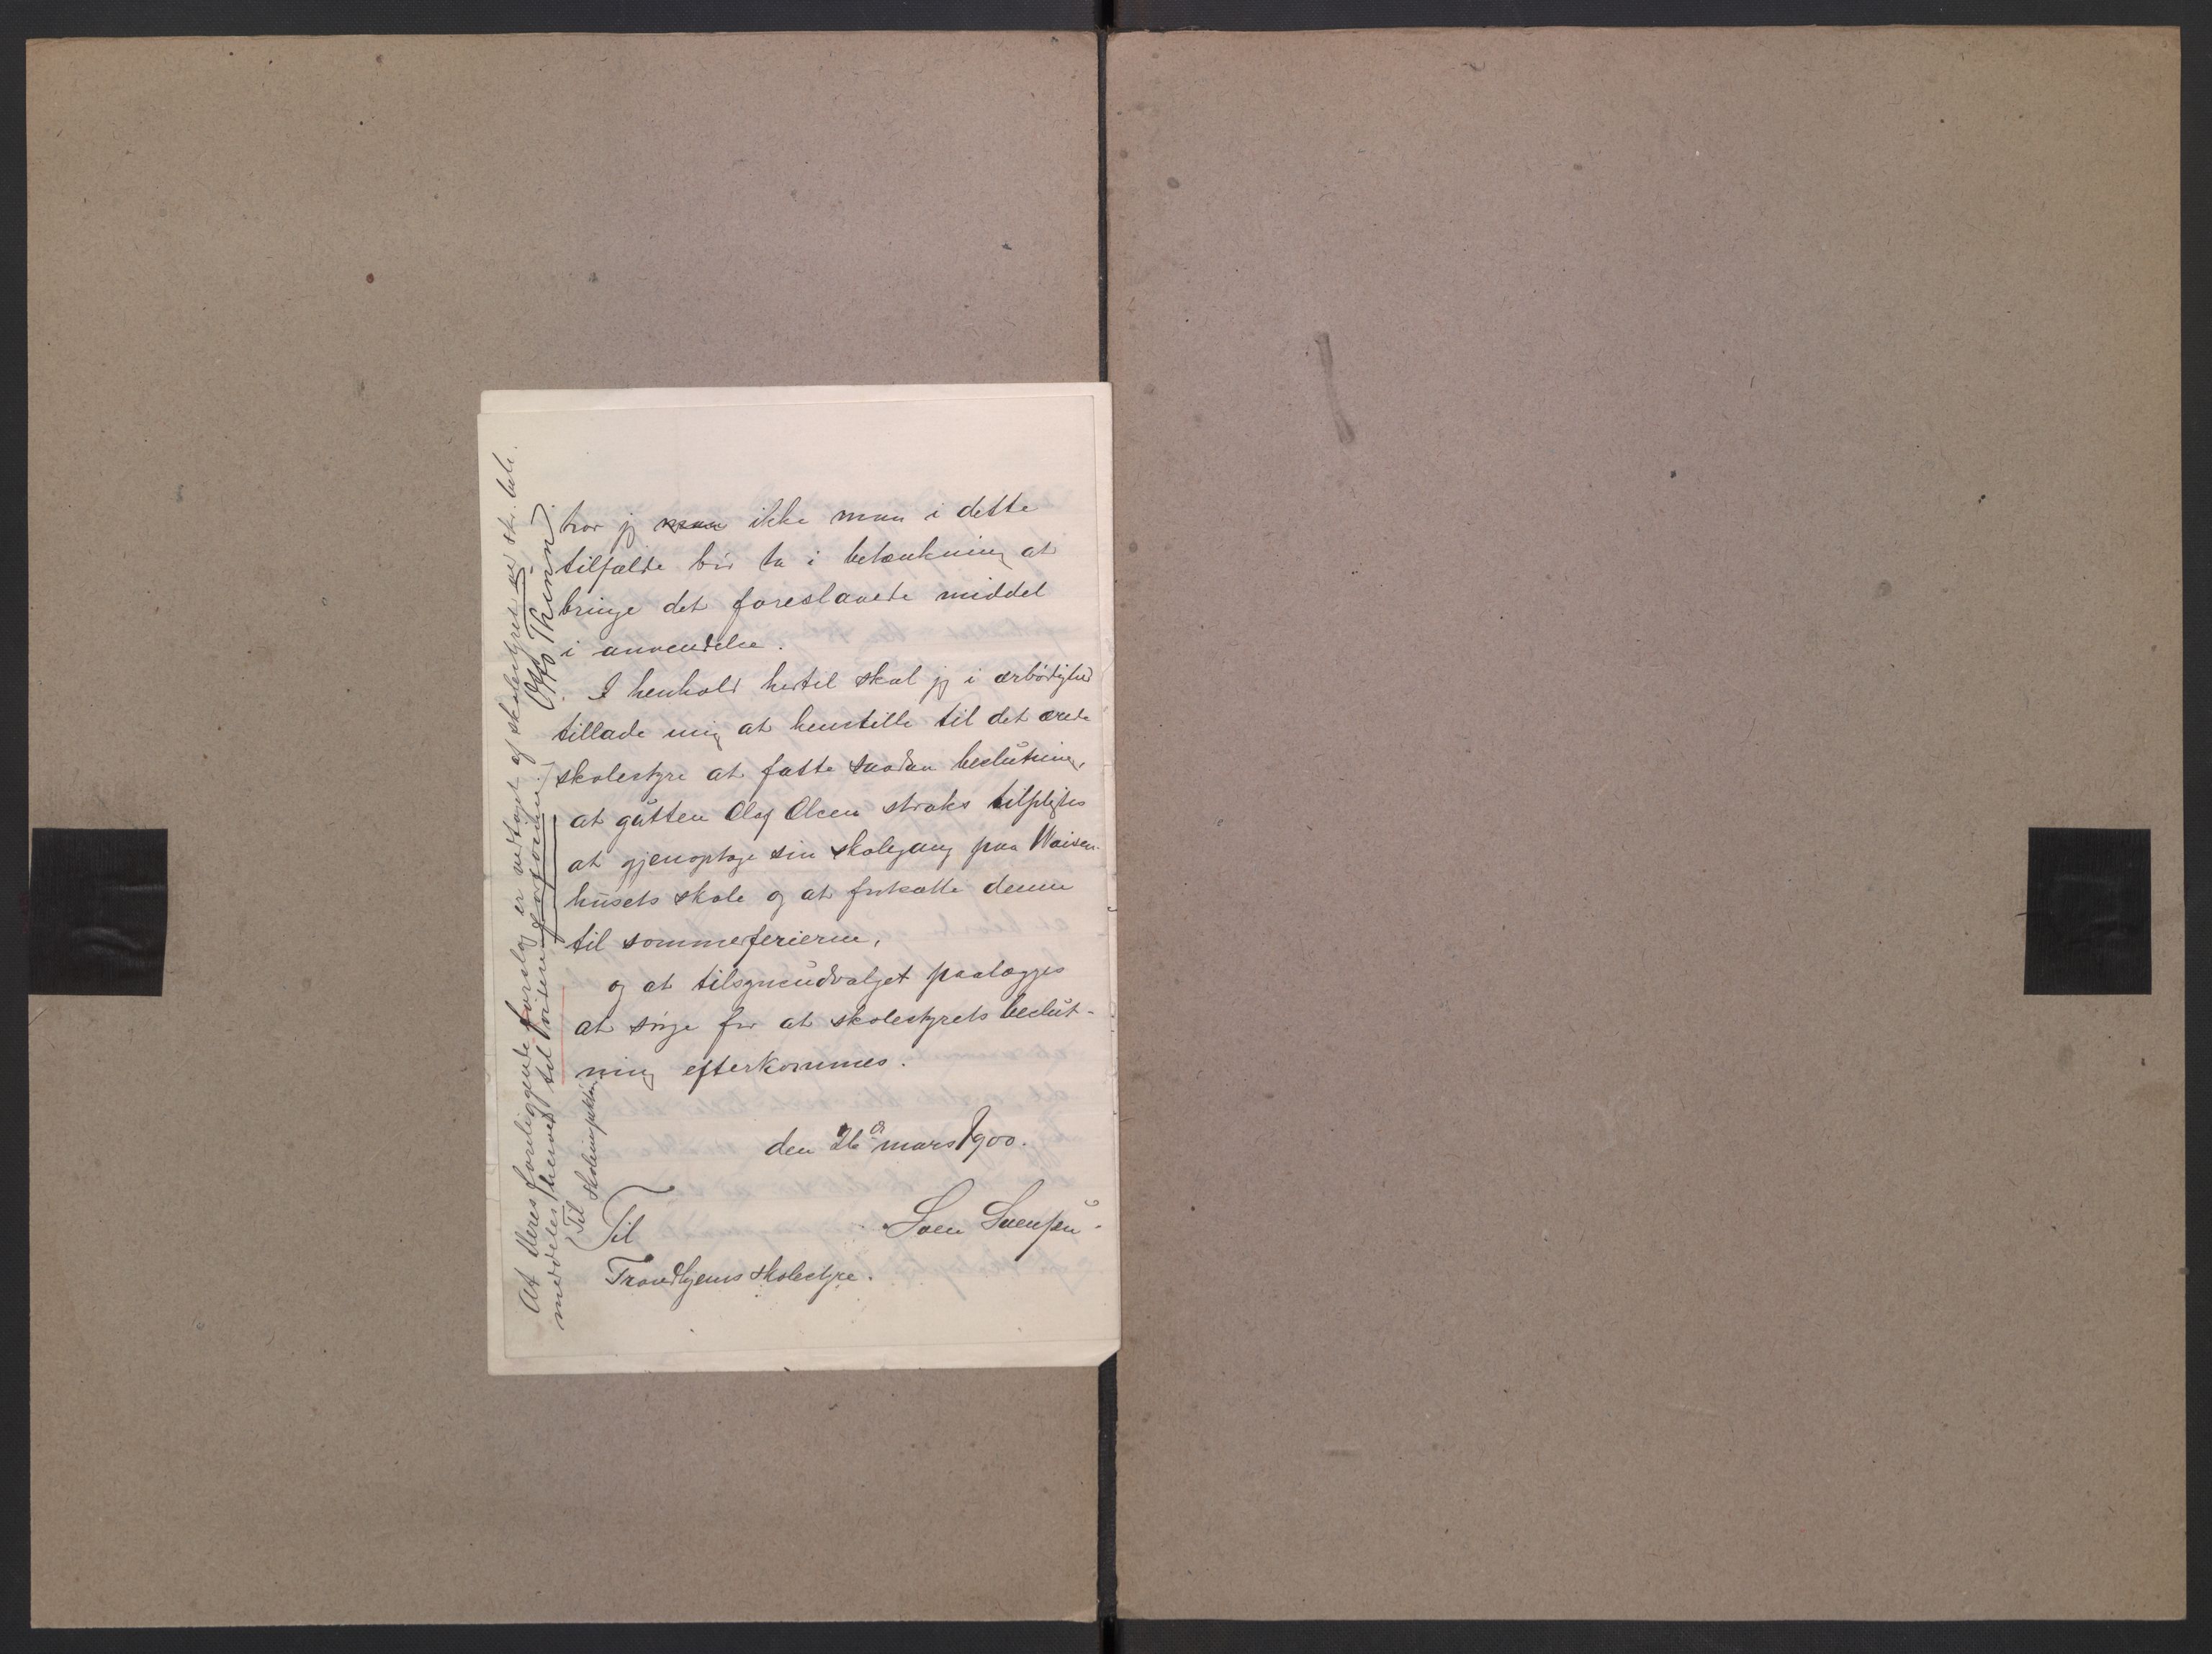 tror jeg man ikke man i dette
tilfælde bør ta i betænkning at
bringe det foreslaaede middel
i anvendelse.
I henhold hertil skal jeg i ærbødighed
tillade mig at henstille til det ærede
skolestyre at fatte saadan beslutning,
at gutten Olaf Olsen straks tilpligtes
at gjenoptage sin skolegang paa Waisen-
husets skole og at fortsætte denne
til sommerferierne,
og at tilsynsudvalget paalægges
at sørge for at skolestyrets beslut-
ning efterkommes.
den 26de mars 1900.
Til
Trondhjems skolestyre.
At Deres foreliggende forslag er vedtaget af skolestyret
meddeles herved til
(Til skoleinspektør
Otto Thinn)